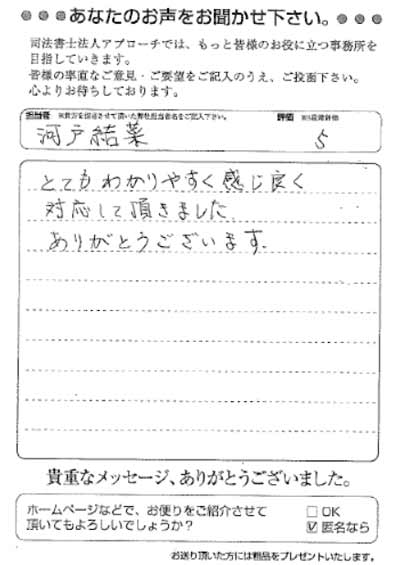 ●●●あなたのお声をお聞かせ下さい。●●●
司法書士法人アプローチでは、もっと皆様のお役に立つ事務所を
目指していきます。
皆様の率直なご意見・ご要望をご記入のうえ、ご投函下さい。
心よりお待ちしております。
担当者 ※貴方を担当させて頂いた弊社担当者名をご記入下さい。 評価 ※5段階評価
河戸結菜 5
とてもわかりやすく感じ良く
対応して頂きました
ありがとうございます。
貴重なメッセージ、ありがとうございました。
ホームページなどで、お便りをご紹介させて
頂いてもよろしいでしょうか?
□ OK
☑ 匿名なら
お送り頂いた方には粗品をプレゼントいたします。